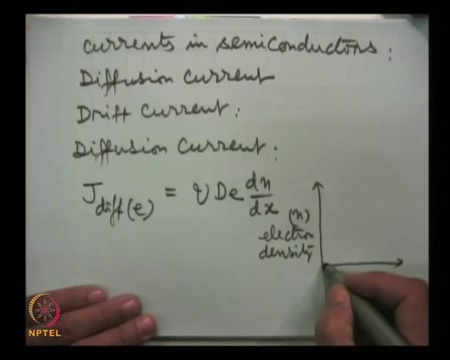 currents in semiconductors:
Diffusion Current
Drift Current:
Diffusion Current:
J diff(e) = q De dn/dx
(n)
electron
density
NPTEL